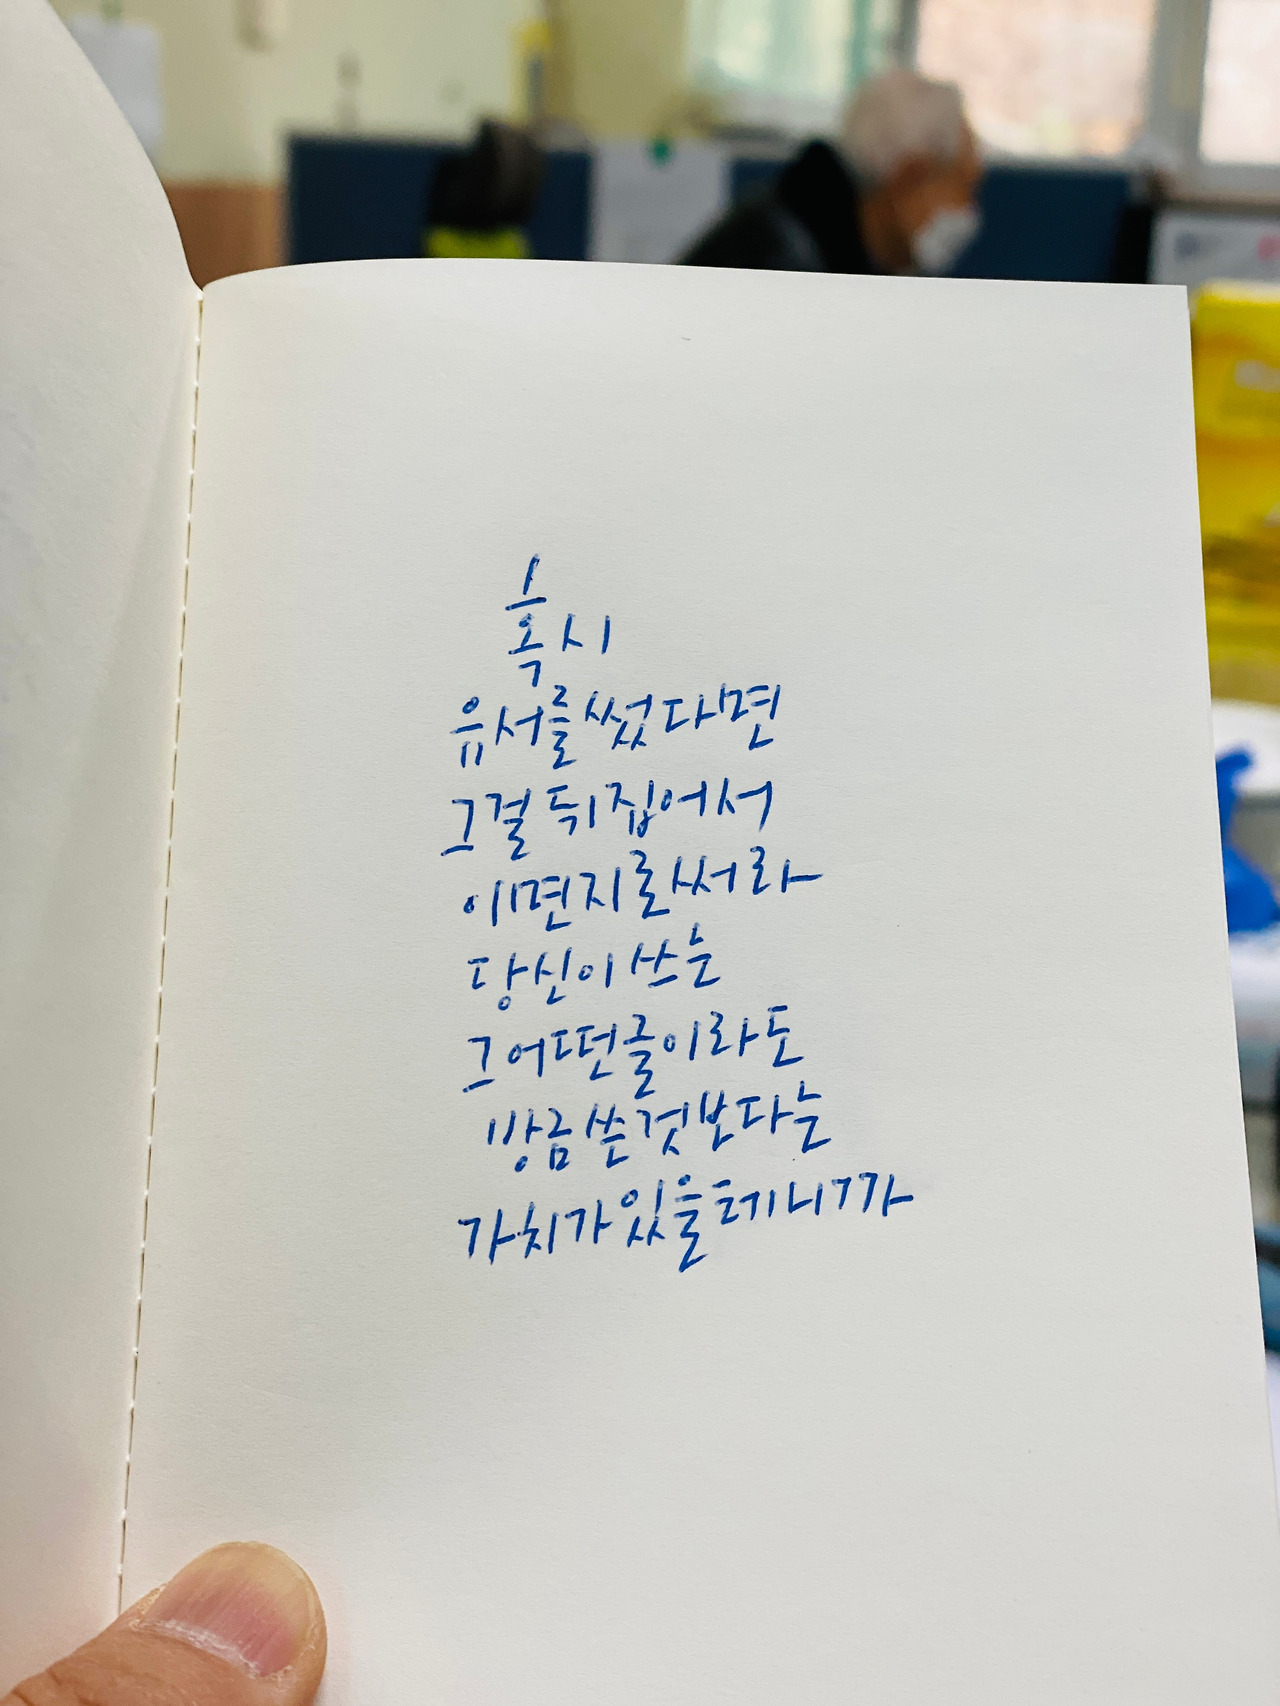 혹시
유서를 썼다면
그걸 뒤집어서
이면지로 써라
당신이 쓰는
그 어떤 글이라도
방금 쓴 것보다는
가치가 있을 테니까